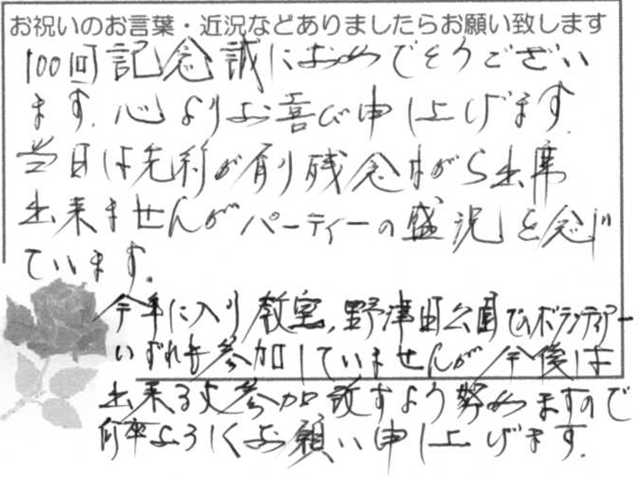 お祝いのお言葉・近況などありましたらお願い致します
100回記念誠におめでとうござい
ます。心よりお喜び申し上げます。
当日は先約が有り残念ながら出席
出来ませんがパーティーの盛況を念じ
ています。
今年に入り教室、野津田公園でのボランティアー
いずれも参加していませんが今後は
出来る丈参加致すよう努めますので
何卒よろしくお願い申し上げます。